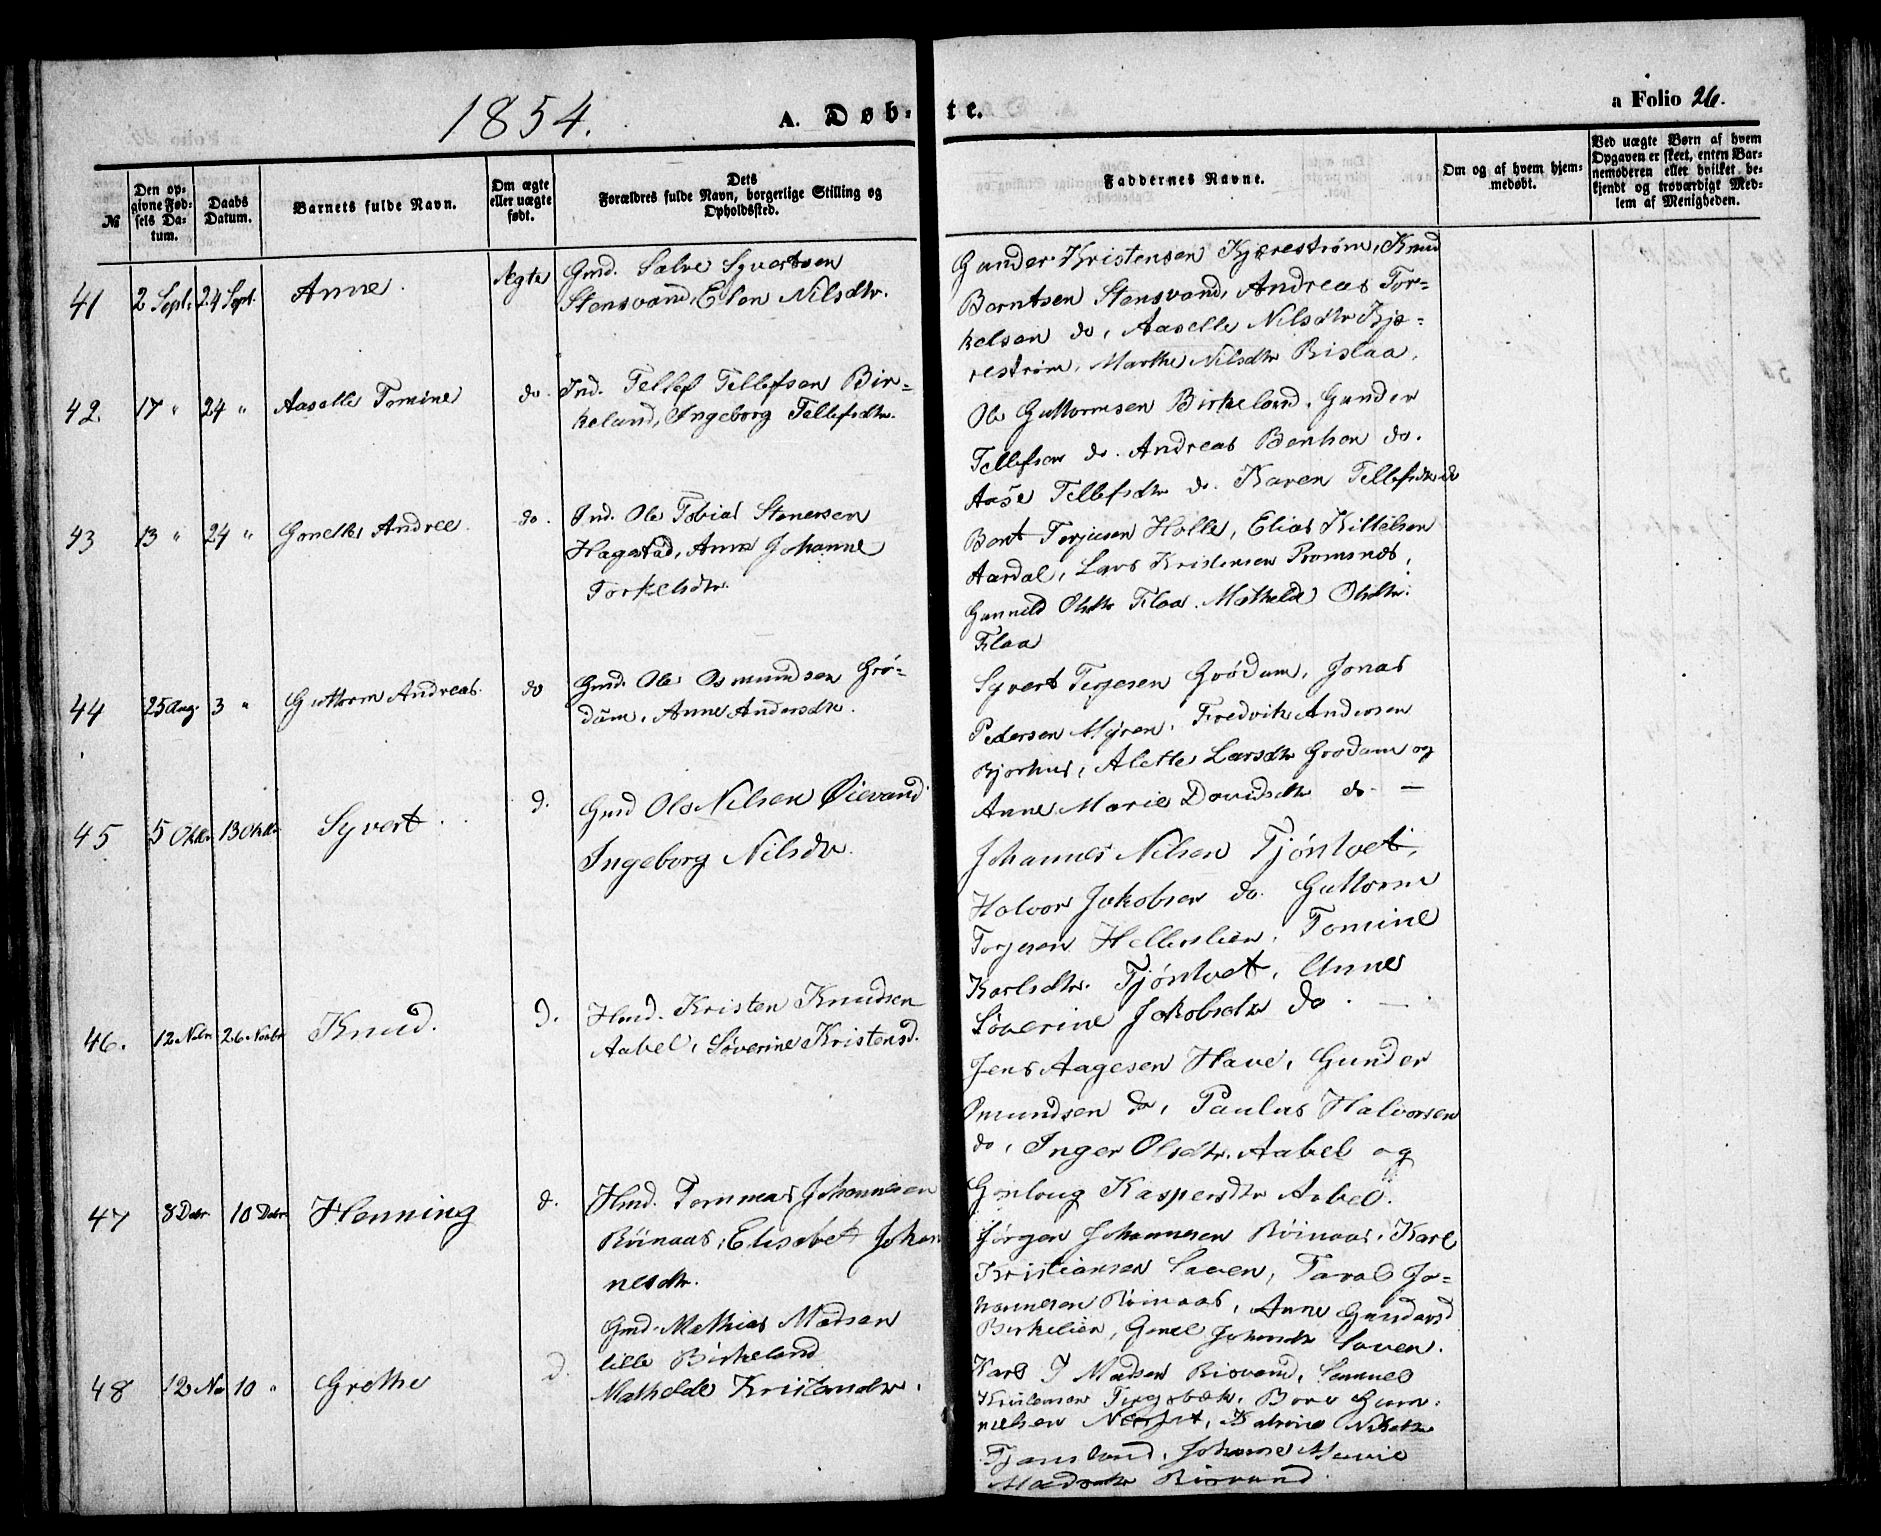 1854.
A. Døb-
te.
a Folio 26.
№
Den op-
givne Fød-
sels Da-
tum.
Daabs
Datum.
Barnets fulde Navn.
Om ægte
eller uægte
født.
Dets
Forældres fulde Navn, borgerlige Stilling og
Opholdssted.
Faddernes Navne.
Om og af hvem hjem-
medøbt.
Ved uægte Børn af hvem
Opgaven er skeet, enten Bar-
nemoderen eller hvilket be-
kjendt og troværdigt Med-
lem af Menigheden.
41
2 Sept.
24 Sept.
Anne.
Ægte
Gmd. Salve Syvertsen
Stensvand, Elen Nilsdtr.
Gunder Kristensen Kjærestrøm, Knud
Berntsen Stensvand, Andreas Tor-
kelsen do, Aaselle Nilsdtr Kjæ-
restrøm, Marthe Nilsdtr Rislaa.
42.
17 "
24 "
Aaselle Tomine
do.
Ind. Tellef Tellefsen Bir-
keland, Ingeborg Tellefsdtr.
Ole Guttormsen Birkeland. Gunder
Tellefsen do. Andreas Bentsen do.
Aase Tellefsdtr do. Karen Tellefsdtr do
43
13 "
24 "
Gonelle Andree.
do.
Ind. Ole Tobias Stenersen
Hagestad, Anne Johanne
Torkelsdtr.
Bent Terjusen Holle, Elias Kittelsen
Aardal, Lars Kristensen Romsnes,
Gunnild Olsdtr Flaa. Mathilde Olsdtr.
Flaa
44
25 Aug.
3 "
Guttorm Andreas.
do
Gmd. Ole Osmundsen Grö-
dam, Anne Andersdtr.
Syvert Terjesen Grödum, Jonas
Pedersen Myren, Fredrik Andersen
Bjorhus, Alette Larsdtr Grodum og
Anne Marie Davidsdtr do. —
45
5 Oktbr
13 Oktbr
Syvert.
d.
Gmd Ole Nilsen Øievand
Ingeborg Nilsdtr.
Johannes Nilsen Tjöntvet,
Halvor Jakobsen do. Guttorm
Torjesen Hellerslien. Tomine
Karlsdtr. Tjöntvet, Anne
Søverine Jakobsdtr do. —
46.
12 Nobr
26 Novbr
Knud.
d.
Hmd. Kristen Knudsen
Aabel, Søverine Kristensd.
Jens Aagesen Have, Gunder
Omundsen do, Paulus Halvorsen
do, Inger Olsdtr. Aabel og
Gonloug Kaspersdtr Aabel.
47
8 Debr
10 Debr
Henning
d.
Hmd. Tommas Johannesen
Röinaas, Elisabet Johan
nesdtr.
Jørgen Johannesen Röinaas, Karl
Kristiansen Saven, Taral Jo-
hannesen Röinaas, Anne Gundersd
Birkelien, Gunel Johansdtr Saven.
48
12 No
10 "
Grethe
d.
Gmd. Mathias Madsen
lille Birkeland
Mathilde Kristiansdtr.
Karl J Madsen Risvand, Samuel
Kristensen, Boru Gun-
nelsen, Katrine Nilsdtr
Tjomsland, Johanne Marie
Madsdtr Risvand.